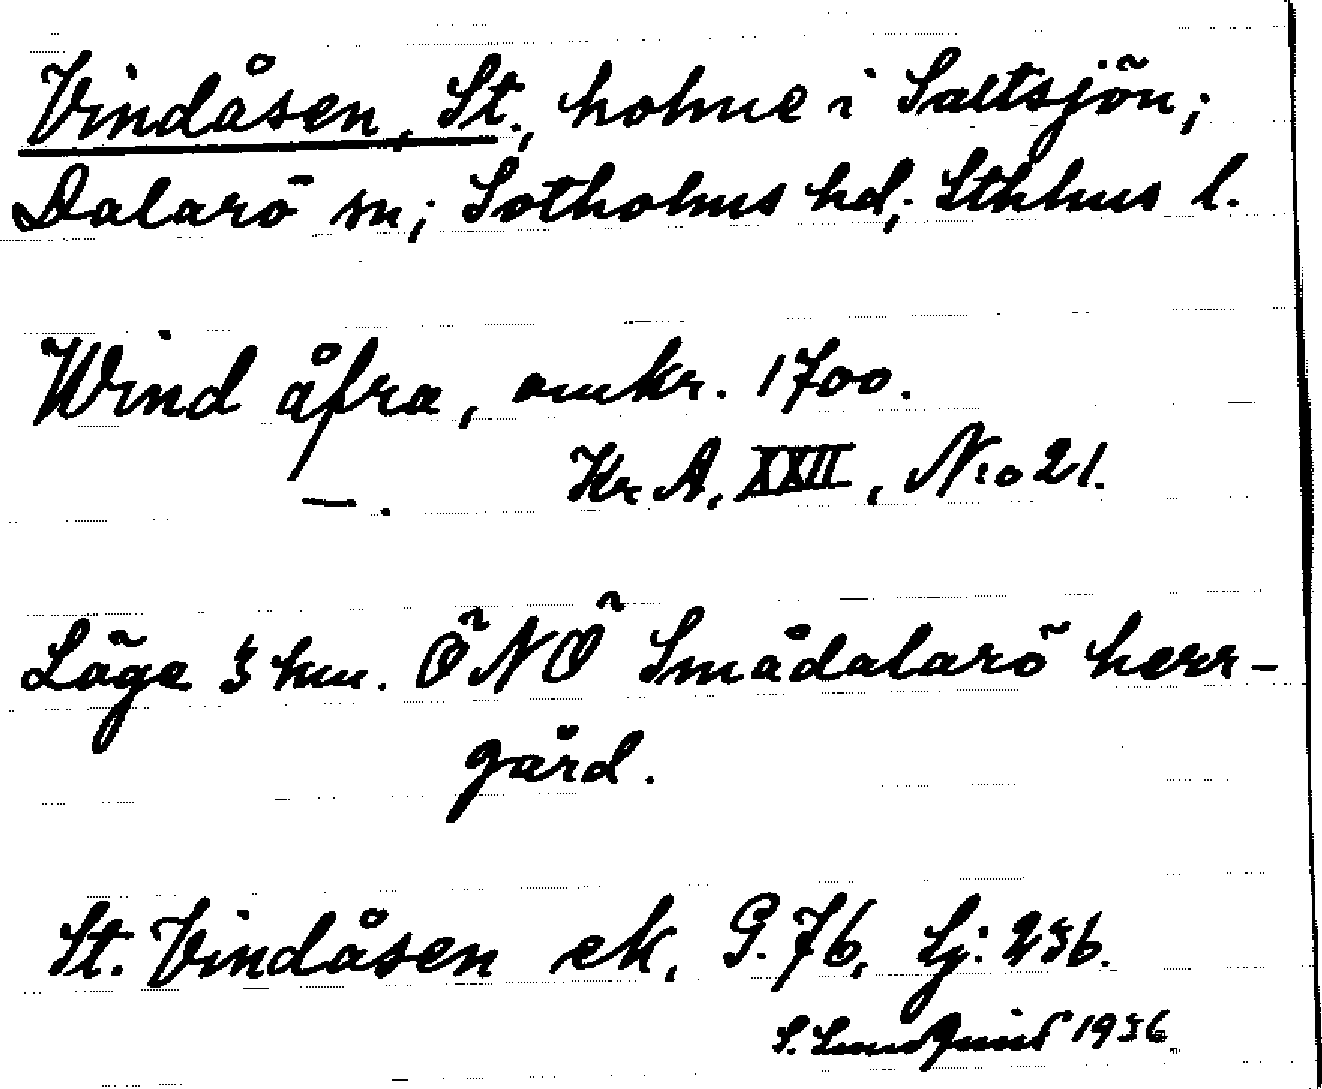 Vindåsen, St., holme i Saltsjön;
Dalarö sn; Sotholms hd; Sthlms l.
Wind åfra, omkr. 1700.
—. Kr. A, XXII, N:o 21.
Läge 3 km. ÖNÖ Smådalarö herr-
gård.
St. Vindåsen ek, G. 76, Lj: 256.
S. Lundquist 1936